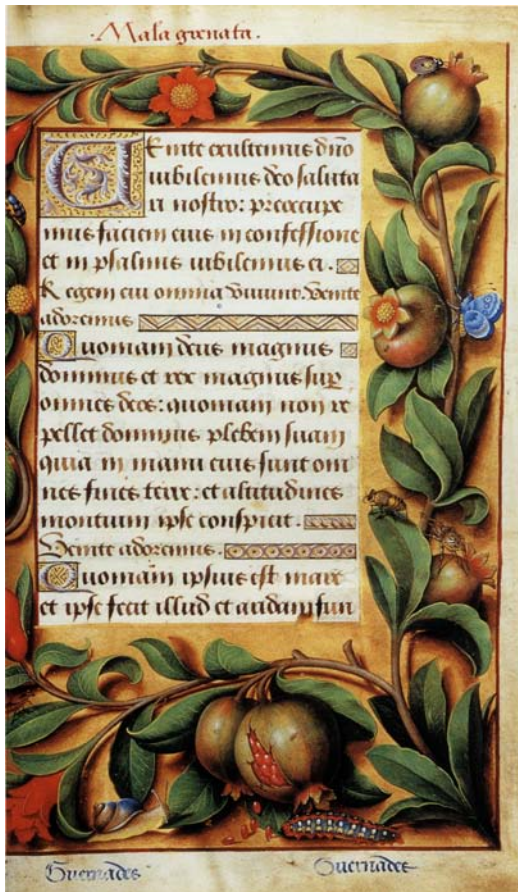 ·Mala granata·
VEnite exultemus dño
iubilemus deo saluta
ri nostro: preoccupe
mus faciem eius in confessione
et in psalmis iubilemus ei.
Regem cui omnia viuunt. Venite
adoremus
Quoniam deus magnus
dominus et rex magnus sup̱
omnes deos: quoniam non re
pellet dominus plebem suam
quia in manu eius sunt om
nes fines terre: et altitudines
montium ipse conspicit.
Venite adoremus.
Quoniam ipsius est mare
et ipse fecit illud et aridam fun
Guernades Guernades